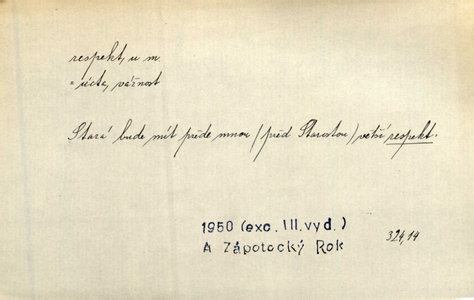 respekt, u m.
= úcta, vážnost
Stará bude mít přede mnou (před Starostou) větší respekt.
1950 (exc. III. vyd.)
A Zápotocký Rok
324,14